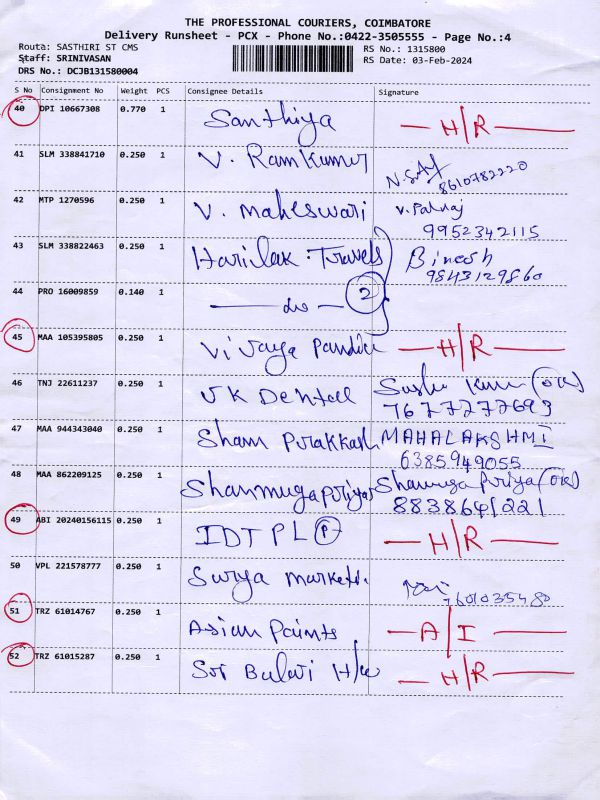 THE PROFESSIONAL COURIERS, COIMBATORE
Delivery Runsheet - PCX - Phone No.:0422-3505555 - Page No.:4
Routa: SASTHIRI ST CMS RS No.: 1315800
Staff: SRINIVASAN RS Date: 03-Feb-2024
DRS No.: DCJB131580004
S No Consignment No Weight PCS Consignee Details Signature
40 DPI 10667308 0.770 1 Santhiya H/R
41 SLM 338841710 0.250 1 V. Ramkumar 8610782220
42 MTP 1270596 0.250 1 V. Maheswari V. Palraj
9952342115
43 SLM 338822463 0.250 1 Harilak Travels Binesh
9843129860
44 PRO 16009859 0.140 1 do 2
45 MAA 105395805 0.250 1 Vijaya Pandian H/R
46 TNJ 22611237 0.250 1 VK Dental
7677277693
47 MAA 944343040 0.250 1 Sham Prakkash MAHALAKSHMI
6385949055
48 MAA 862209125 0.250 1 Shanmugapriya Shanmuga Priya
8838641221
49 ABI 20240156115 0.250 1 IDTPL P H/R
50 VPL 221578777 0.250 1 Surya Marketi. 7601035480
51 TRZ 61014767 0.250 1 Asian Paints A/I
52 TRZ 61015287 0.250 1 Sri Balaji H/w H/R